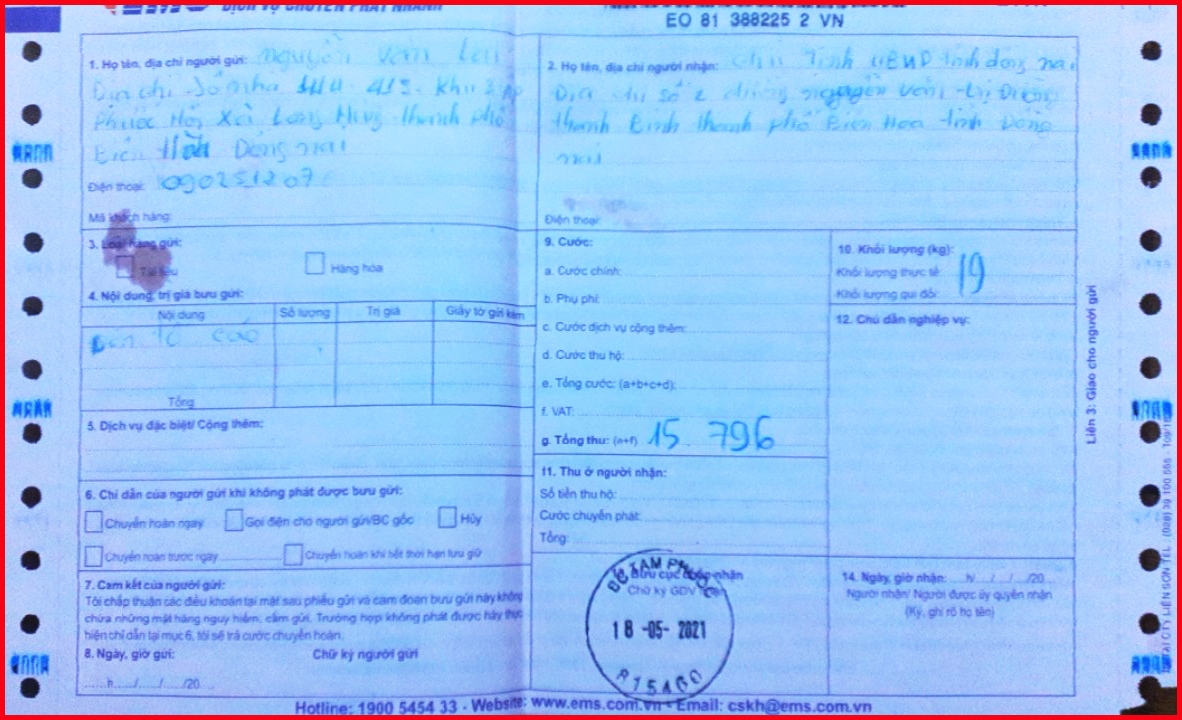 EMS DỊCH VỤ CHUYỂN PHÁT NHANH
EO 81 388225 2 VN
1. Họ tên, địa chỉ người gửi: nguyễn văn
Địa chỉ số nhà khu 3 ấp
Phước Hội Xã Long Hưng thành phố
Biên Hòa Đồng nai
Điện thoại: 090251207
Mã khách hàng:
2. Họ tên, địa chỉ người nhận: chủ Tịnh UBND tỉnh đồng nai
Địa chỉ số 2 đường nguyễn văn Trị
thanh Bình thanh phố Biên Hoa tỉnh Đồng
nai
Điện thoại:
3. Loại hàng gửi:
Tài liệu
Hàng hóa
4. Nội dung, trị giá bưu gửi:
Nội dung Số lượng Trị giá Giấy tờ gửi kèm
Đơn tố cáo
Tổng
5. Dịch vụ đặc biệt/ Cộng thêm:
6. Chỉ dẫn của người gửi khi không phát được bưu gửi:
Chuyển hoàn ngay Gọi điện cho người gửi/BC gốc Hủy
Chuyển hoàn trước ngày Chuyển hoàn khi hết thời hạn lưu giữ
7. Cam kết của người gửi:
Tôi chấp thuận các điều khoản tại mặt sau phiếu gửi và cam đoan bưu gửi này không
chứa những mặt hàng nguy hiểm, cấm gửi. Trường hợp không phát được hãy thực
hiện chỉ dẫn tại mục 6, tôi sẽ trả cước chuyển hoàn.
8. Ngày, giờ gửi: Chữ ký người gửi
h / / /20
9. Cước:
a. Cước chính:
b. Phụ phí:
c. Cước dịch vụ cộng thêm:
d. Cước thu hộ:
e. Tổng cước: (a+b+c+d):
f. VAT:
g. Tổng thu: (e+f) 15.796
10. Khối lượng (kg):
Khối lượng thực tế: 19
Khối lượng qui đổi:
11. Thu ở người nhận:
Số tiền thu hộ:
Cước chuyển phát:
Tổng:
12. Chú dẫn nghiệp vụ:
Bưu cục chấp nhận
Chữ ký GDV
BC TAM PHƯỚC
18 -05- 2021
815460
14. Ngày, giờ nhận: h / / /20
Người nhận/ Người được ủy quyền nhận
(Ký, ghi rõ họ tên)
Liên 3: Giao cho người gửi
Hotline: 1900 5454 33 - Website: www.ems.com.vn - Email: cskh@ems.com.vn